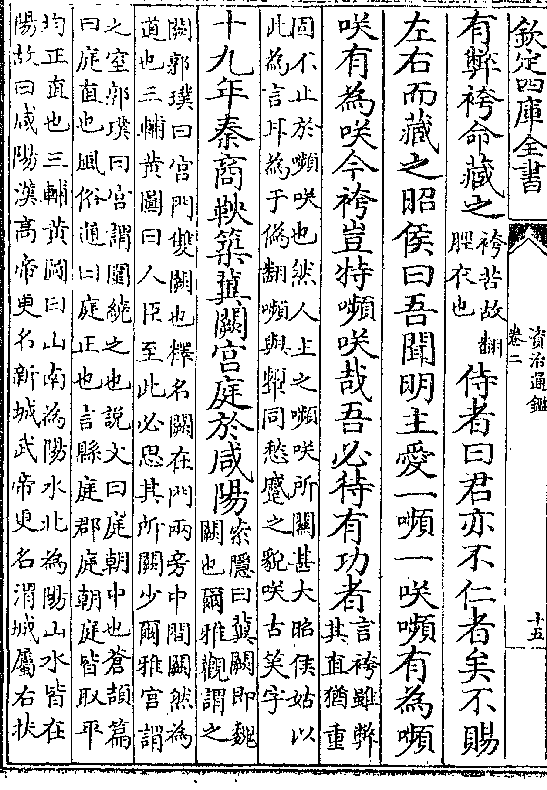 欽定四庫全書
資治通鑑
卷二
十五
有弊袴命藏之
袴苦故翻
脛衣也
侍者曰君亦不仁者矣不賜
左右而藏之昭侯曰吾聞明主愛一嚬一咲嚬有為嚬
咲有為咲今袴豈特嚬咲哉吾必待有功者
言袴雖弊
其直猶重
固不止於嚬咲也然人主之嚬咲所關甚大昭侯姑以
此為言耳為于偽翻嚬與顰同愁蹙之貌咲古笑字
十九年秦商鞅築冀闕宮庭於咸陽
索隱曰冀闕即魏
闕也爾雅觀謂之
闕郭璞曰宮門雙闕也釋名闕在門兩旁中間闕然為
道也三輔黃圖曰人臣至此必思其所闕少爾雅宮謂
之室郭璞曰宮謂圍繞之也説文曰庭朝中也蒼頡篇
曰庭直也風俗通曰庭正也言縣庭郡庭朝庭皆取平
均正直也三輔黃圖曰山南為陽水北為陽山水皆在
陽故曰咸陽漢高帝更名新城武帝更名渭城屬右扶